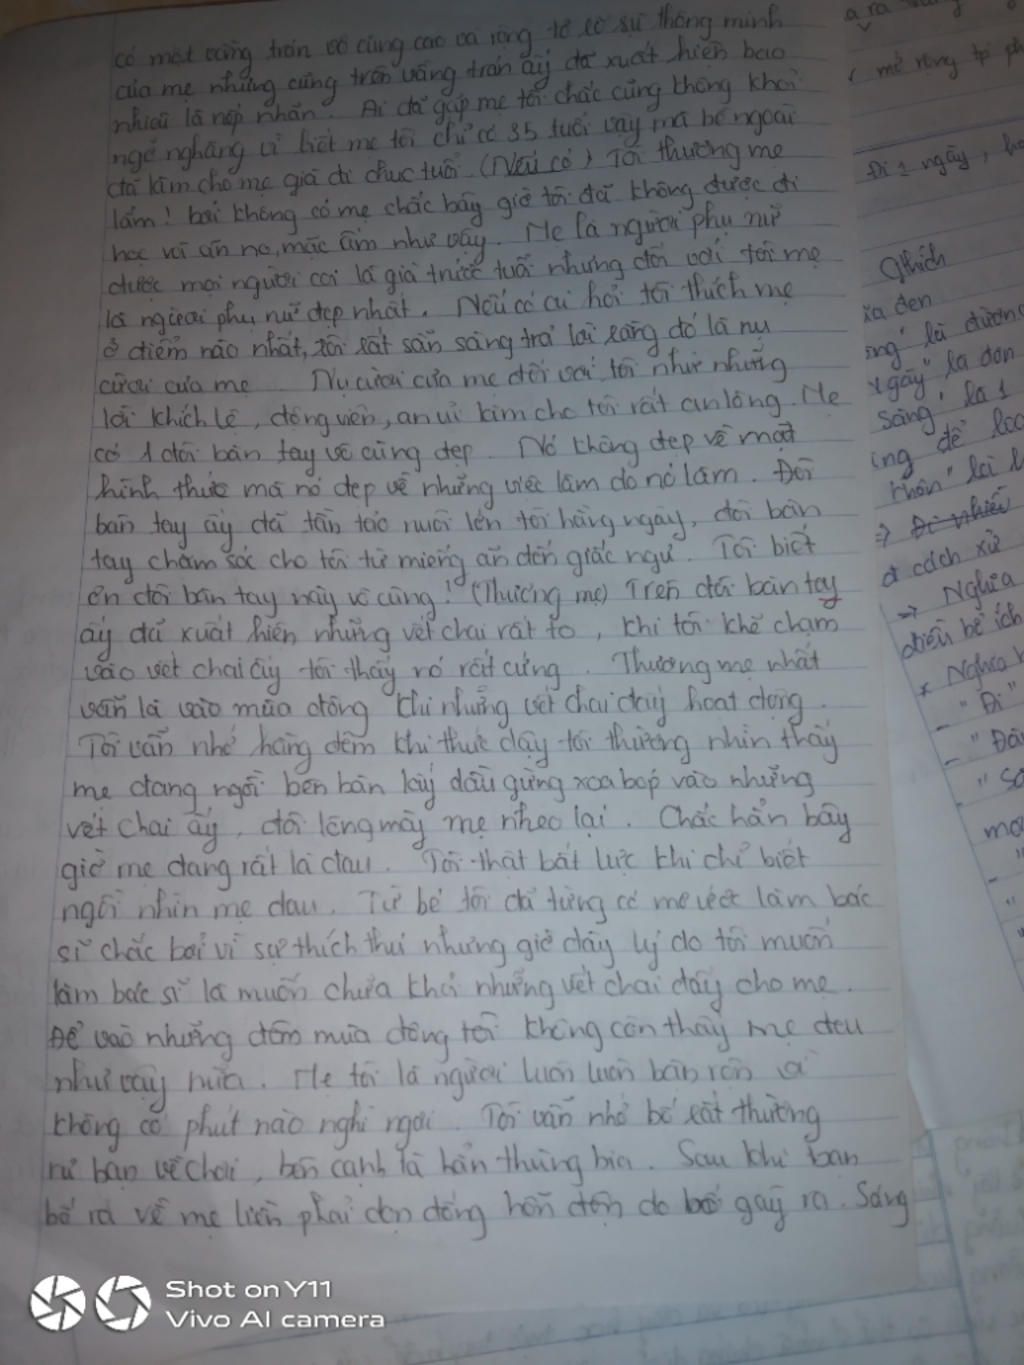 có một vầng trán vô cùng cao và rộng tỏ rõ sự thông minh
của mẹ nhưng cũng trên vầng trán ấy đã xuất hiện bao
nhiêu là nếp nhăn. Ai đã gặp mẹ tôi chắc cũng không khỏi
ngỡ ngàng vì biết mẹ tôi chỉ có 35 tuổi vậy mà bề ngoài
đã làm cho mẹ già đi chục tuổi. (Nếu có) Tôi thương mẹ
lắm! bởi không có mẹ chắc bây giờ tôi đã không được đi
học và ăn no, mặc ấm như vậy. Mẹ là người phụ nữ
được mọi người coi là già trước tuổi nhưng đối với tôi mẹ
là người phụ nữ đẹp nhất. Nếu có ai hỏi tôi thích mẹ
ở điểm nào nhất, tôi rất sẵn sàng trả lời rằng đó là nụ
cười của mẹ. Nụ cười của mẹ đối với tôi như những
lời khích lệ, động viên, an ủi làm cho tôi rất an lòng. Mẹ
có 1 đôi bàn tay vô cùng đẹp. Nó không đẹp về mặt
hình thức mà nó đẹp về những việc làm do nó làm. Đôi
bàn tay ấy đã tần tảo nuôi lớn tôi hằng ngày, đôi bàn
tay chăm sóc cho tôi từ miếng ăn đến giấc ngủ. Tôi biết
ơn đôi bàn tay này vô cùng! (Thương mẹ) Trên đôi bàn tay
ấy đã xuất hiện những vết chai rất to, khi tôi khẽ chạm
vào vết chai ấy tôi thấy nó rất cứng. Thương mẹ nhất
vẫn là vào mùa đông khi những vết chai đấy hoạt động.
Tôi vẫn nhớ hằng đêm khi thức dậy tôi thường nhìn thấy
mẹ đang ngồi bên bàn lấy dầu gừng xoa bóp vào những
vết chai ấy, đôi lông mày mẹ nheo lại. Chắc hẳn bây
giờ mẹ đang rất là đau. Tôi thật bất lực khi chỉ biết
ngồi nhìn mẹ đau. Từ bé tôi đã từng có mơ ước làm bác
sĩ chắc bởi vì sự thích thú nhưng giờ đây lý do tôi muốn
làm bác sĩ là muốn chữa khỏi những vết chai đấy cho mẹ.
Để vào những đêm mùa đông tôi không còn thấy mẹ đau
như vậy nữa. Mẹ tôi là người luôn luôn bận rộn và
không có phút nào nghỉ ngơi. Tôi vẫn nhớ bố rất thường
rủ bạn về chơi, bên cạnh là hẳn thùng bia. Sau khi bạn
bố ra về mẹ liền phải dọn đống hỗn độn do bố gây ra. Sáng
a ra
mở rộng tp
Đi 1 ngày,
Gthích
là đường
là đơn
sáng, là 1
ing để
khôn" lại
=> Đi nhiều
cách xử
-> Nghĩa
điều bổ ích
x Nghĩa
- "Đi"
- "Đàn
Shot on Y11
Vivo AI camera